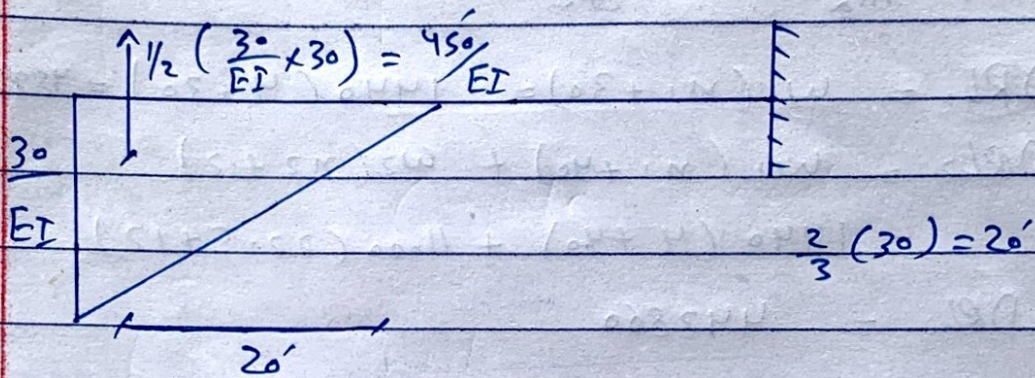 1/2 ( 30/EI × 30 ) = 450/EI
30/EI
2/3 (30) = 20'
20'